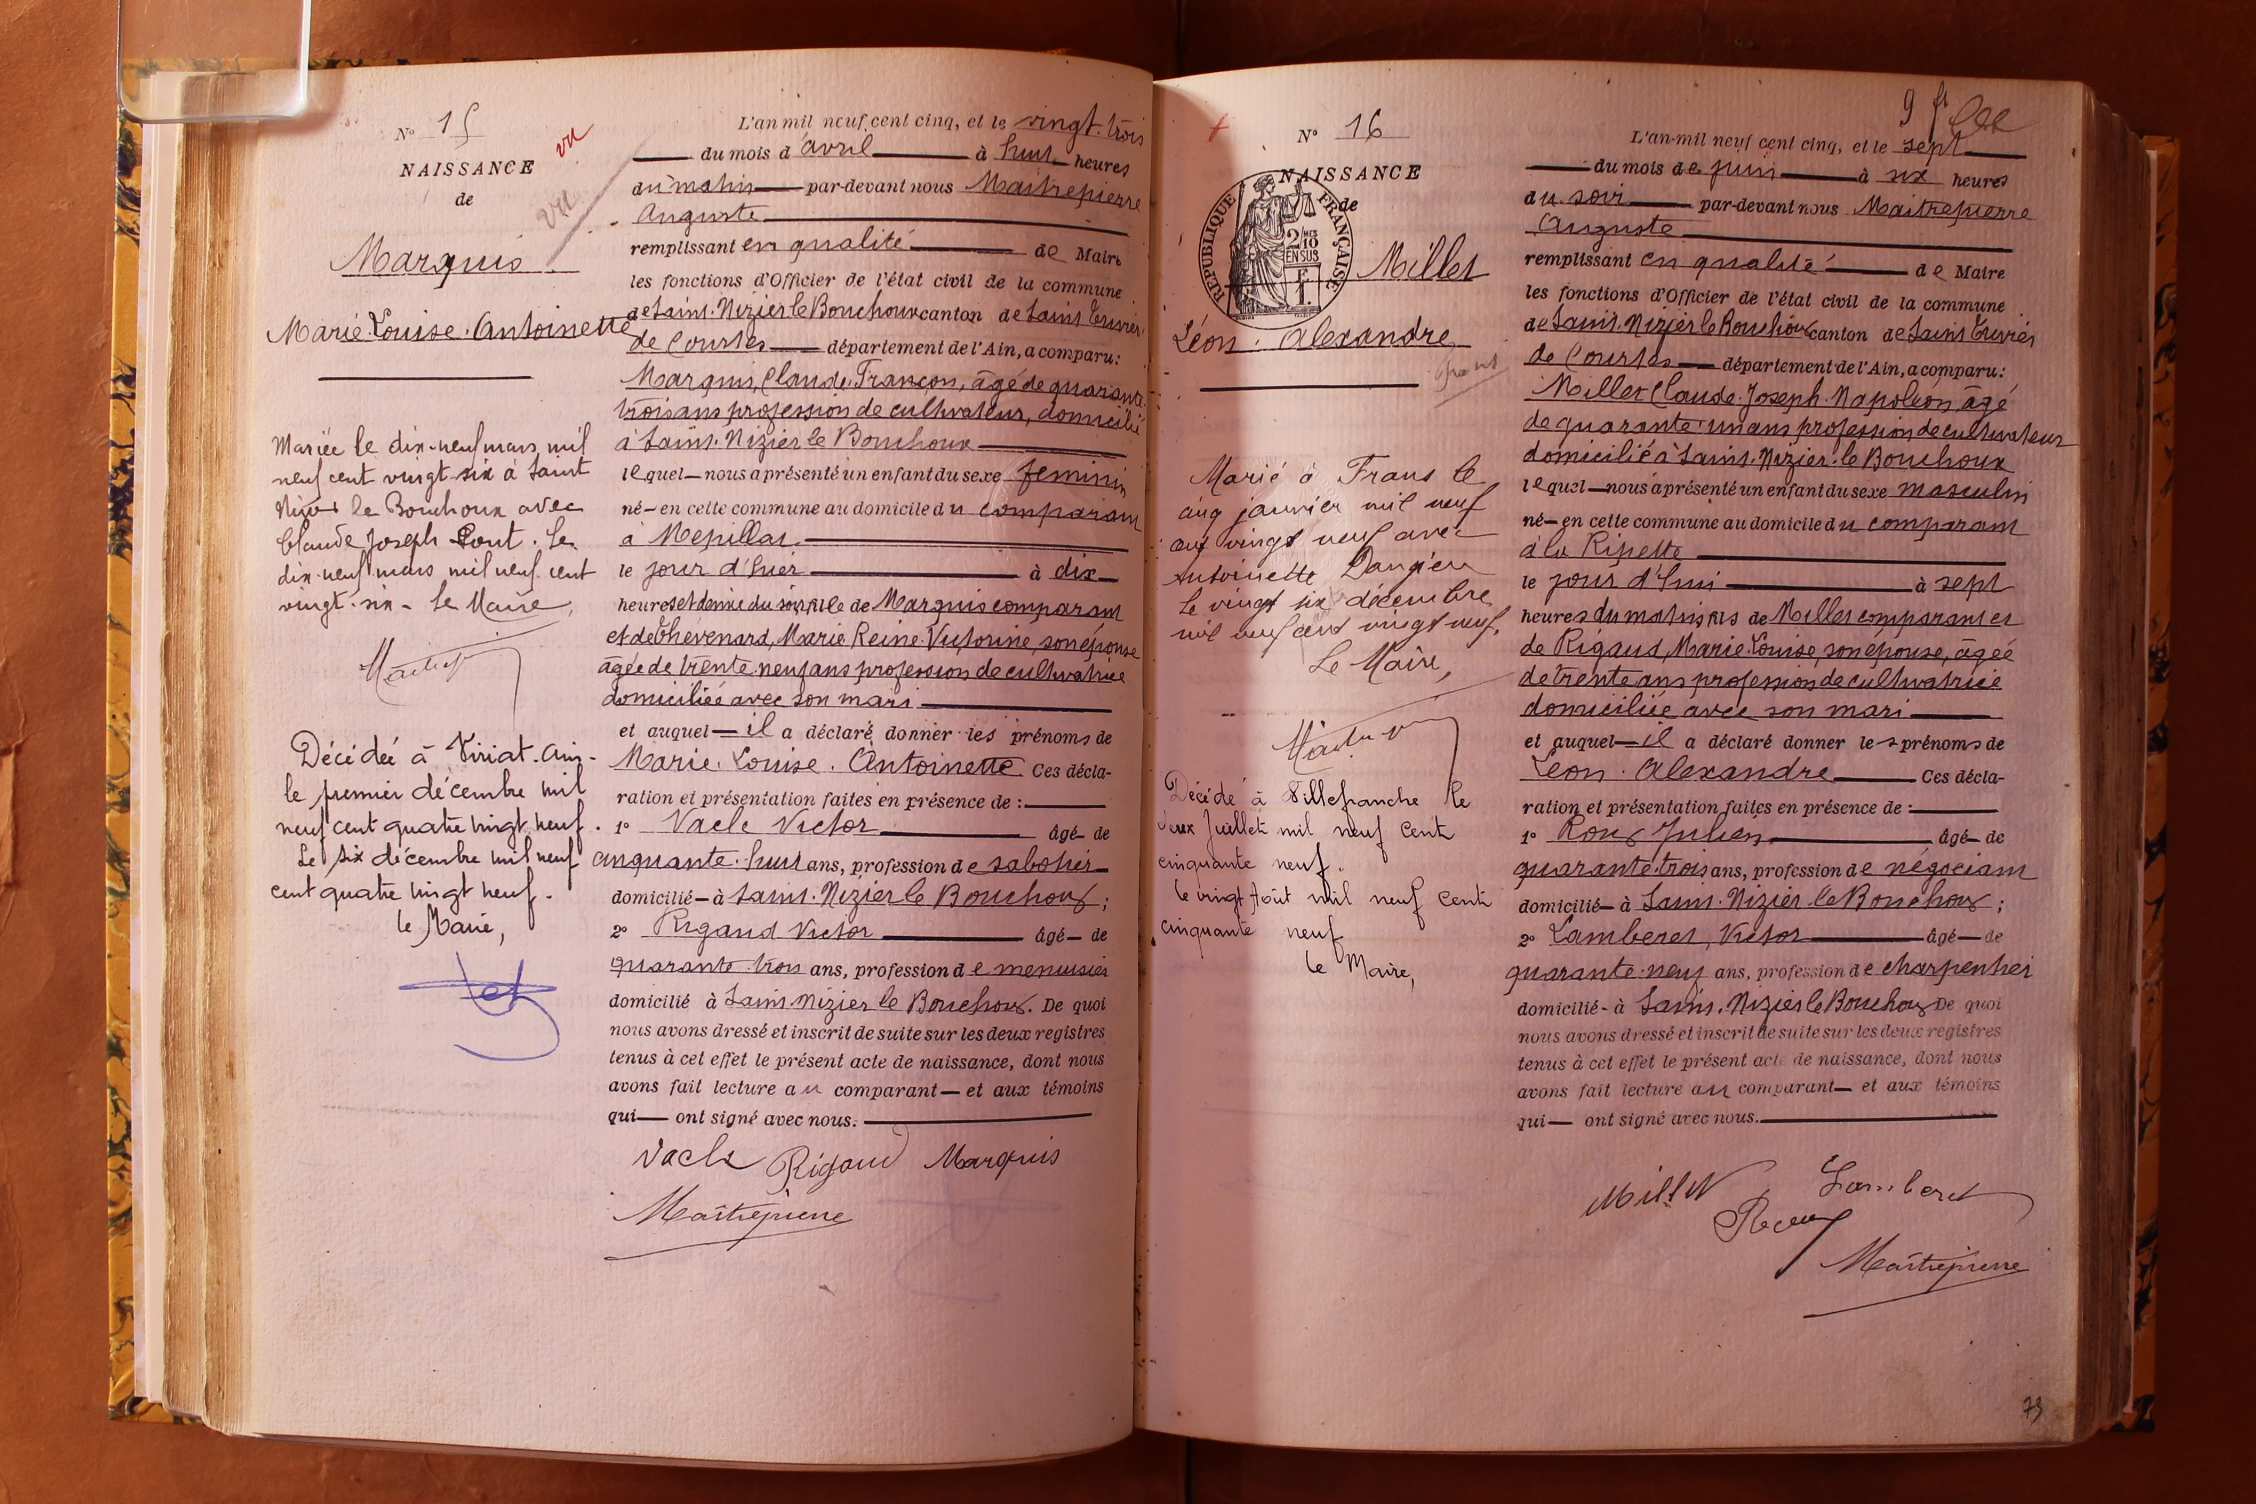 N° 15
vu
NAISSANCE
de
vu
Marquis
Marie Louise Antoinette
Mariée le dix-neuf mars mil
neuf cent vingt-six à Saint
Nizier le Bouchoux avec
Claude Joseph Pont. Le
dix-neuf mars mil neuf cent
vingt-six - Le Maire,
Décédée à Viriat-Ain-
le premier décembre mil
neuf cent quatre vingt neuf.
Le six décembre mil neuf
cent quatre vingt neuf.
le Maire,
L'an mil neuf cent cinq, et le vingt-trois
du mois d'avril à huit heures
du matin par-devant nous Maitrepierre
Auguste
remplissant en qualité de Maire
les fonctions d'Officier de l'état civil de la commune
de Saint-Nizier le Bouchoux canton de Saint Trivier
de Courtes département de l'Ain, a comparu:
Marquis, Claude François, âgé de quarante
trois ans profession de cultivateur, domicilié
à Saint-Nizier le Bouchoux
lequel - nous a présenté un enfant du sexe feminin
né - en cette commune au domicile du comparant
à Mépillat
le jour d'hier à dix
heures et demie du soir fille de Marquis comparant
et de Chevenard, Marie Reine Victorine, son épouse
âgée de trente-neuf ans profession de cultivatrice
domiciliée avec son mari
et auquel - il a déclaré donner les prénoms de
Marie Louise Antoinette Ces décla-
ration et présentation faites en présence de :
1° Vacle Victor âgé - de
cinquante-huit ans, profession de sabotier
domicilié - à Saint-Nizier le Bouchoux ;
2° Rigaud Victor âgé - de
quarante-trois ans, profession de menuisier
domicilié à Saint Nizier le Bouchoux. De quoi
nous avons dressé et inscrit de suite sur les deux registres
tenus à cet effet le présent acte de naissance, dont nous
avons fait lecture au comparant - et aux témoins
qui - ont signé avec nous.
Vacle Rigaud Marquis
Maitrepierre
N° 16
NAISSANCE
de
REPUBLIQUE FRANÇAISE
2/10 EN SUS
Millet
Léon Alexandre
Marié à Frans le
cinq janvier mil neuf
cent vingt neuf avec
Antoinette
Le vingt six décembre
mil neuf cent vingt neuf.
Le Maire,
Décédé à Villefranche le
deux Juillet mil neuf cent
cinquante neuf.
le vingt Août mil neuf cent
cinquante neuf
le Maire,
L'an mil neuf cent cinq, et le sept
du mois de juin à six heures
du soir par-devant nous Maitrepierre
Auguste
remplissant en qualité de Maire
les fonctions d'Officier de l'état civil de la commune
de Saint-Nizier le Bouchoux canton de Saint Trivier
de Courtes département de l'Ain, a comparu:
Millet Claude Joseph Napoléon âgé
de quarante-un ans profession de cultivateur
domicilié à Saint-Nizier-le Bouchoux
lequel - nous a présenté un enfant du sexe masculin
né - en cette commune au domicile du comparant
à la Ripette
le jour d'hui à sept
heures du matin fils de Millet comparant et
de Rigaud, Marie-Louise, son épouse, âgée
de trente ans profession de cultivatrice
domiciliée avec son mari
et auquel - il a déclaré donner les prénoms de
Léon Alexandre Ces décla-
ration et présentation faites en présence de :
1° Roux Julien âgé - de
quarante-trois ans, profession de négociant
domicilié - à Saint-Nizier le Bouchoux ;
2° Lamberet, Victor âgé - de
quarante-neuf ans, profession de charpentier
domicilié - à Saint-Nizier le Bouchoux De quoi
nous avons dressé et inscrit de suite sur les deux registres
tenus à cet effet le présent acte de naissance, dont nous
avons fait lecture au comparant - et aux témoins
qui - ont signé avec nous.
Millet Lamberet
Roux
Maitrepierre
73